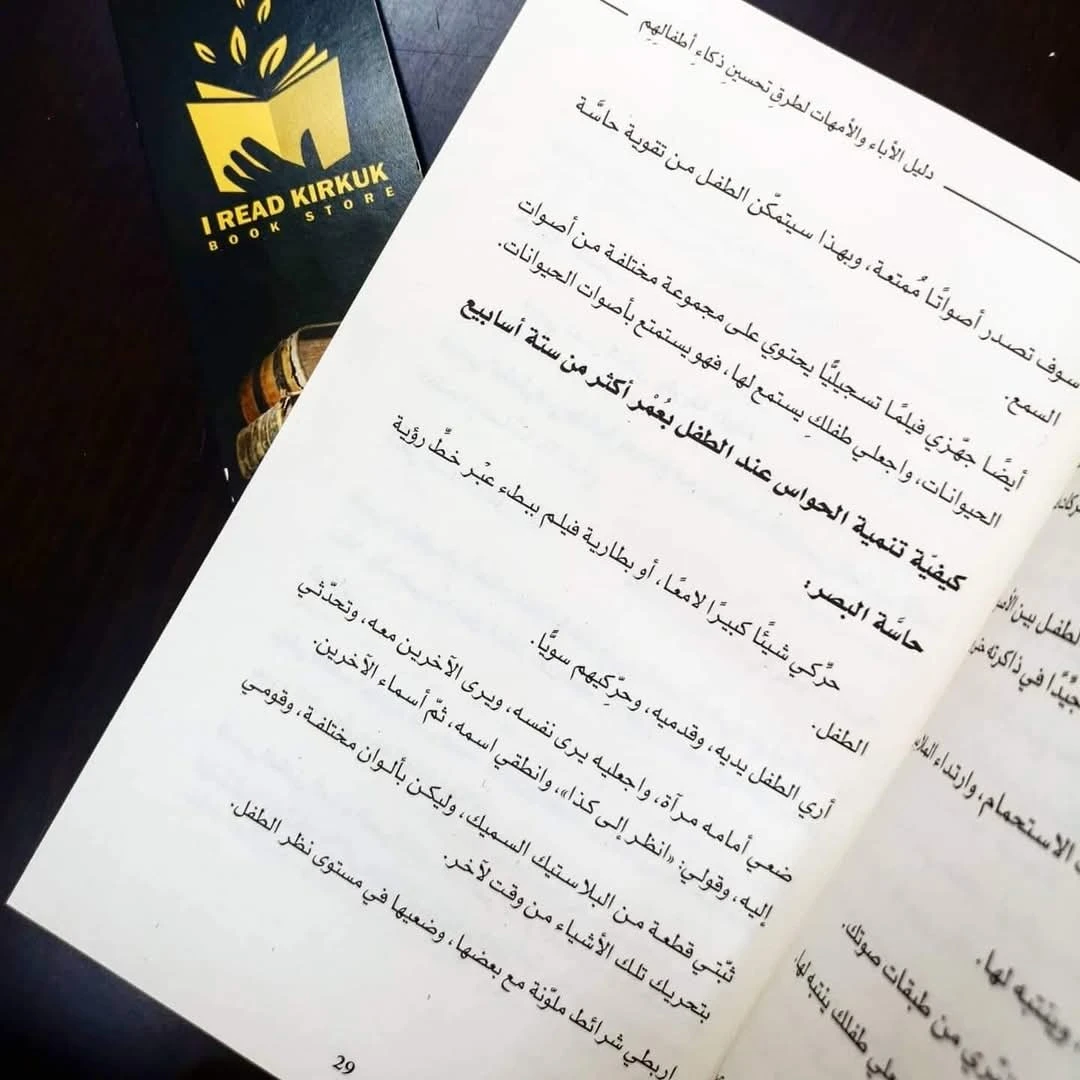 I READ KIRKUK
BOOK STORE
دليل الأباء والأمهات لطرقِ تحسينِ ذكاءِ أطفالهِم
سوف تصدر أصواتًا مُمتعة، وبهذا سيتمكّن الطفل من تقوية حاسَّة
السمع.
أيضًا جهّزي فيلمًا تسجيليًّا يحتوي على مجموعة مختلفة من أصوات
الحيوانات، واجعلي طفلكِ يستمع لها، فهو يستمتع بأصوات الحيوانات.
كيفيَة تنمية الحواس عند الطفل بعُمْر أكثر من ستة أسابيع
حاسَّة البصر:
حرِّكي شيئًا كبيرًا لامعًا، أو بطارية فيلم ببطء عبْر خطِّ رؤية
الطفل.
أري الطفل يديه، وقدميه، وحرِّكيهم سويًّا.
ضعي أمامه مرآة، واجعليه يرى نفسه، ويرى الآخرين معه، وتحدّثي
إليه، وقولي: «انظر إلى كذا»، وانطقي اسمه، ثمّ أسماء الآخرين.
ثبّتي قطعة من البلاستيك السميك، وليكن بألوان مختلفة، وقومي
بتحريك تلك الأشياء من وقت لآخر.
اربطي شرائط ملوّنة مع بعضها، وضعيها في مستوى نظر الطفل.
29
لطفل بين
في ذاكرته
الاستحمام، وارتداء
وينتبه لها.
من طبقات صوتك.
طفلك ينتبه لها،